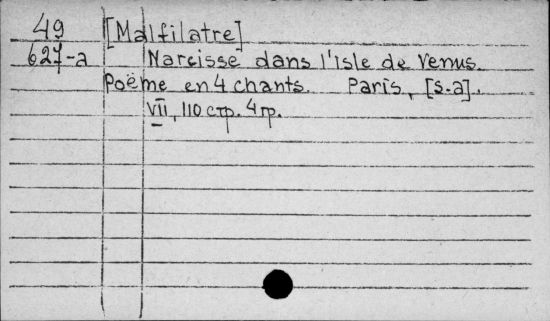 49 [Malfilatre]
627-a Narcisse dans l'isle de Venus.
Poëme en 4 chants. Paris, [s.a].
VII, 110 стр. 4 гр.